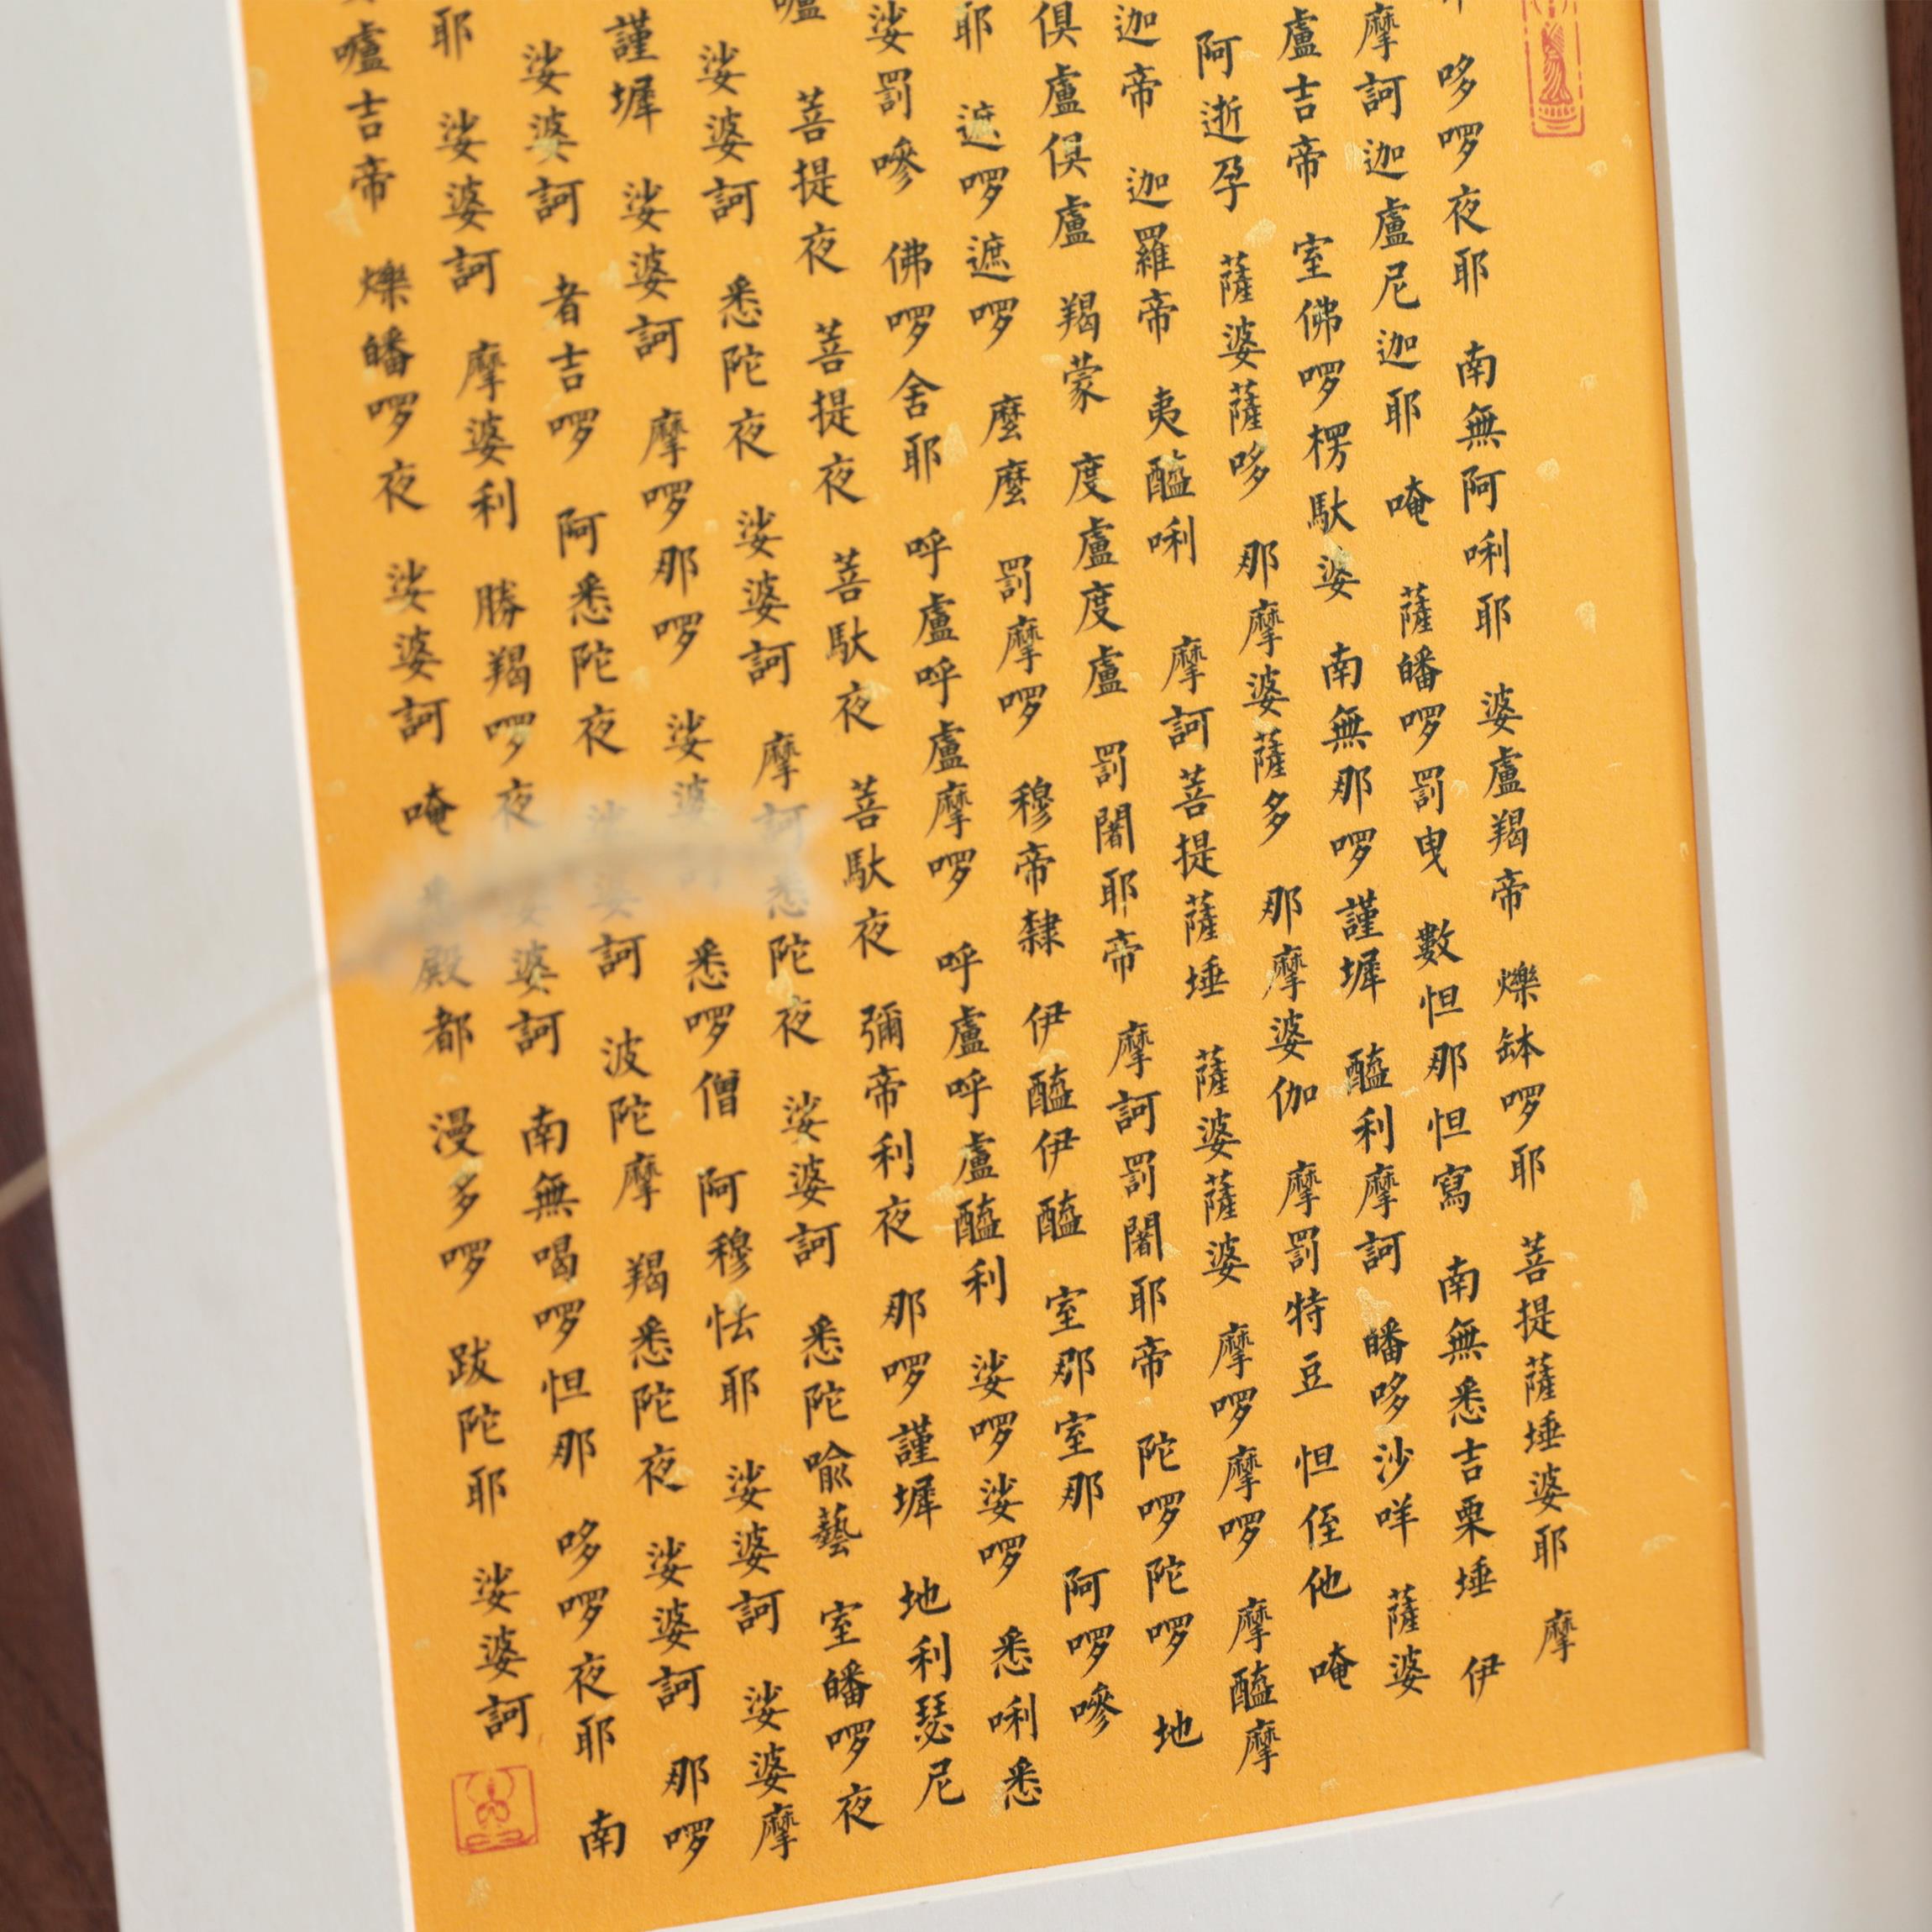 哆啰夜耶 南無阿唎耶 婆盧羯帝 爍鉢啰耶 菩提薩埵婆耶 摩
摩訶迦盧尼迦耶 唵 薩皤啰罰曳 數怛那怛寫 南無悉吉栗埵 伊
盧吉帝 室佛啰楞馱婆 南無那啰謹墀 醯利摩訶 皤哆沙咩 薩婆
阿逝孕 薩婆薩哆 那摩婆薩多 那摩婆伽 摩罰特豆 怛侄他 唵
迦帝 迦羅帝 夷醯唎 摩訶菩提薩埵 薩婆薩婆 摩啰摩啰 摩醯摩
俱盧俱盧 羯蒙 度盧度盧 罰闍耶帝 摩訶罰闍耶帝 陀啰陀啰 地
耶 遮啰遮啰 麼麼 罰摩啰 穆帝隸 伊醯伊醯 室那室那 阿啰嘇
娑罰嘇 佛啰舍耶 呼盧呼盧摩啰 呼盧呼盧醯利 娑啰娑啰 悉唎悉
嚧 菩提夜 菩提夜 菩馱夜 菩馱夜 彌帝利夜 那啰謹墀 地利瑟尼
娑婆訶 悉陀夜 娑婆訶 摩訶悉陀夜 娑婆訶 悉陀喻藝 室皤啰夜
謹墀 娑婆訶 摩啰那啰 娑婆訶 悉啰僧 阿穆怯耶 娑婆訶 娑婆摩
娑婆訶 者吉啰 阿悉陀夜 娑婆訶 波陀摩 羯悉陀夜 娑婆訶 那啰
耶 娑婆訶 摩婆利 勝羯啰夜 娑婆訶 南無喝啰怛那 哆啰夜耶 南
嚧吉帝 爍皤啰夜 娑婆訶 唵 悉殿都 漫多啰 跋陀耶 娑婆訶